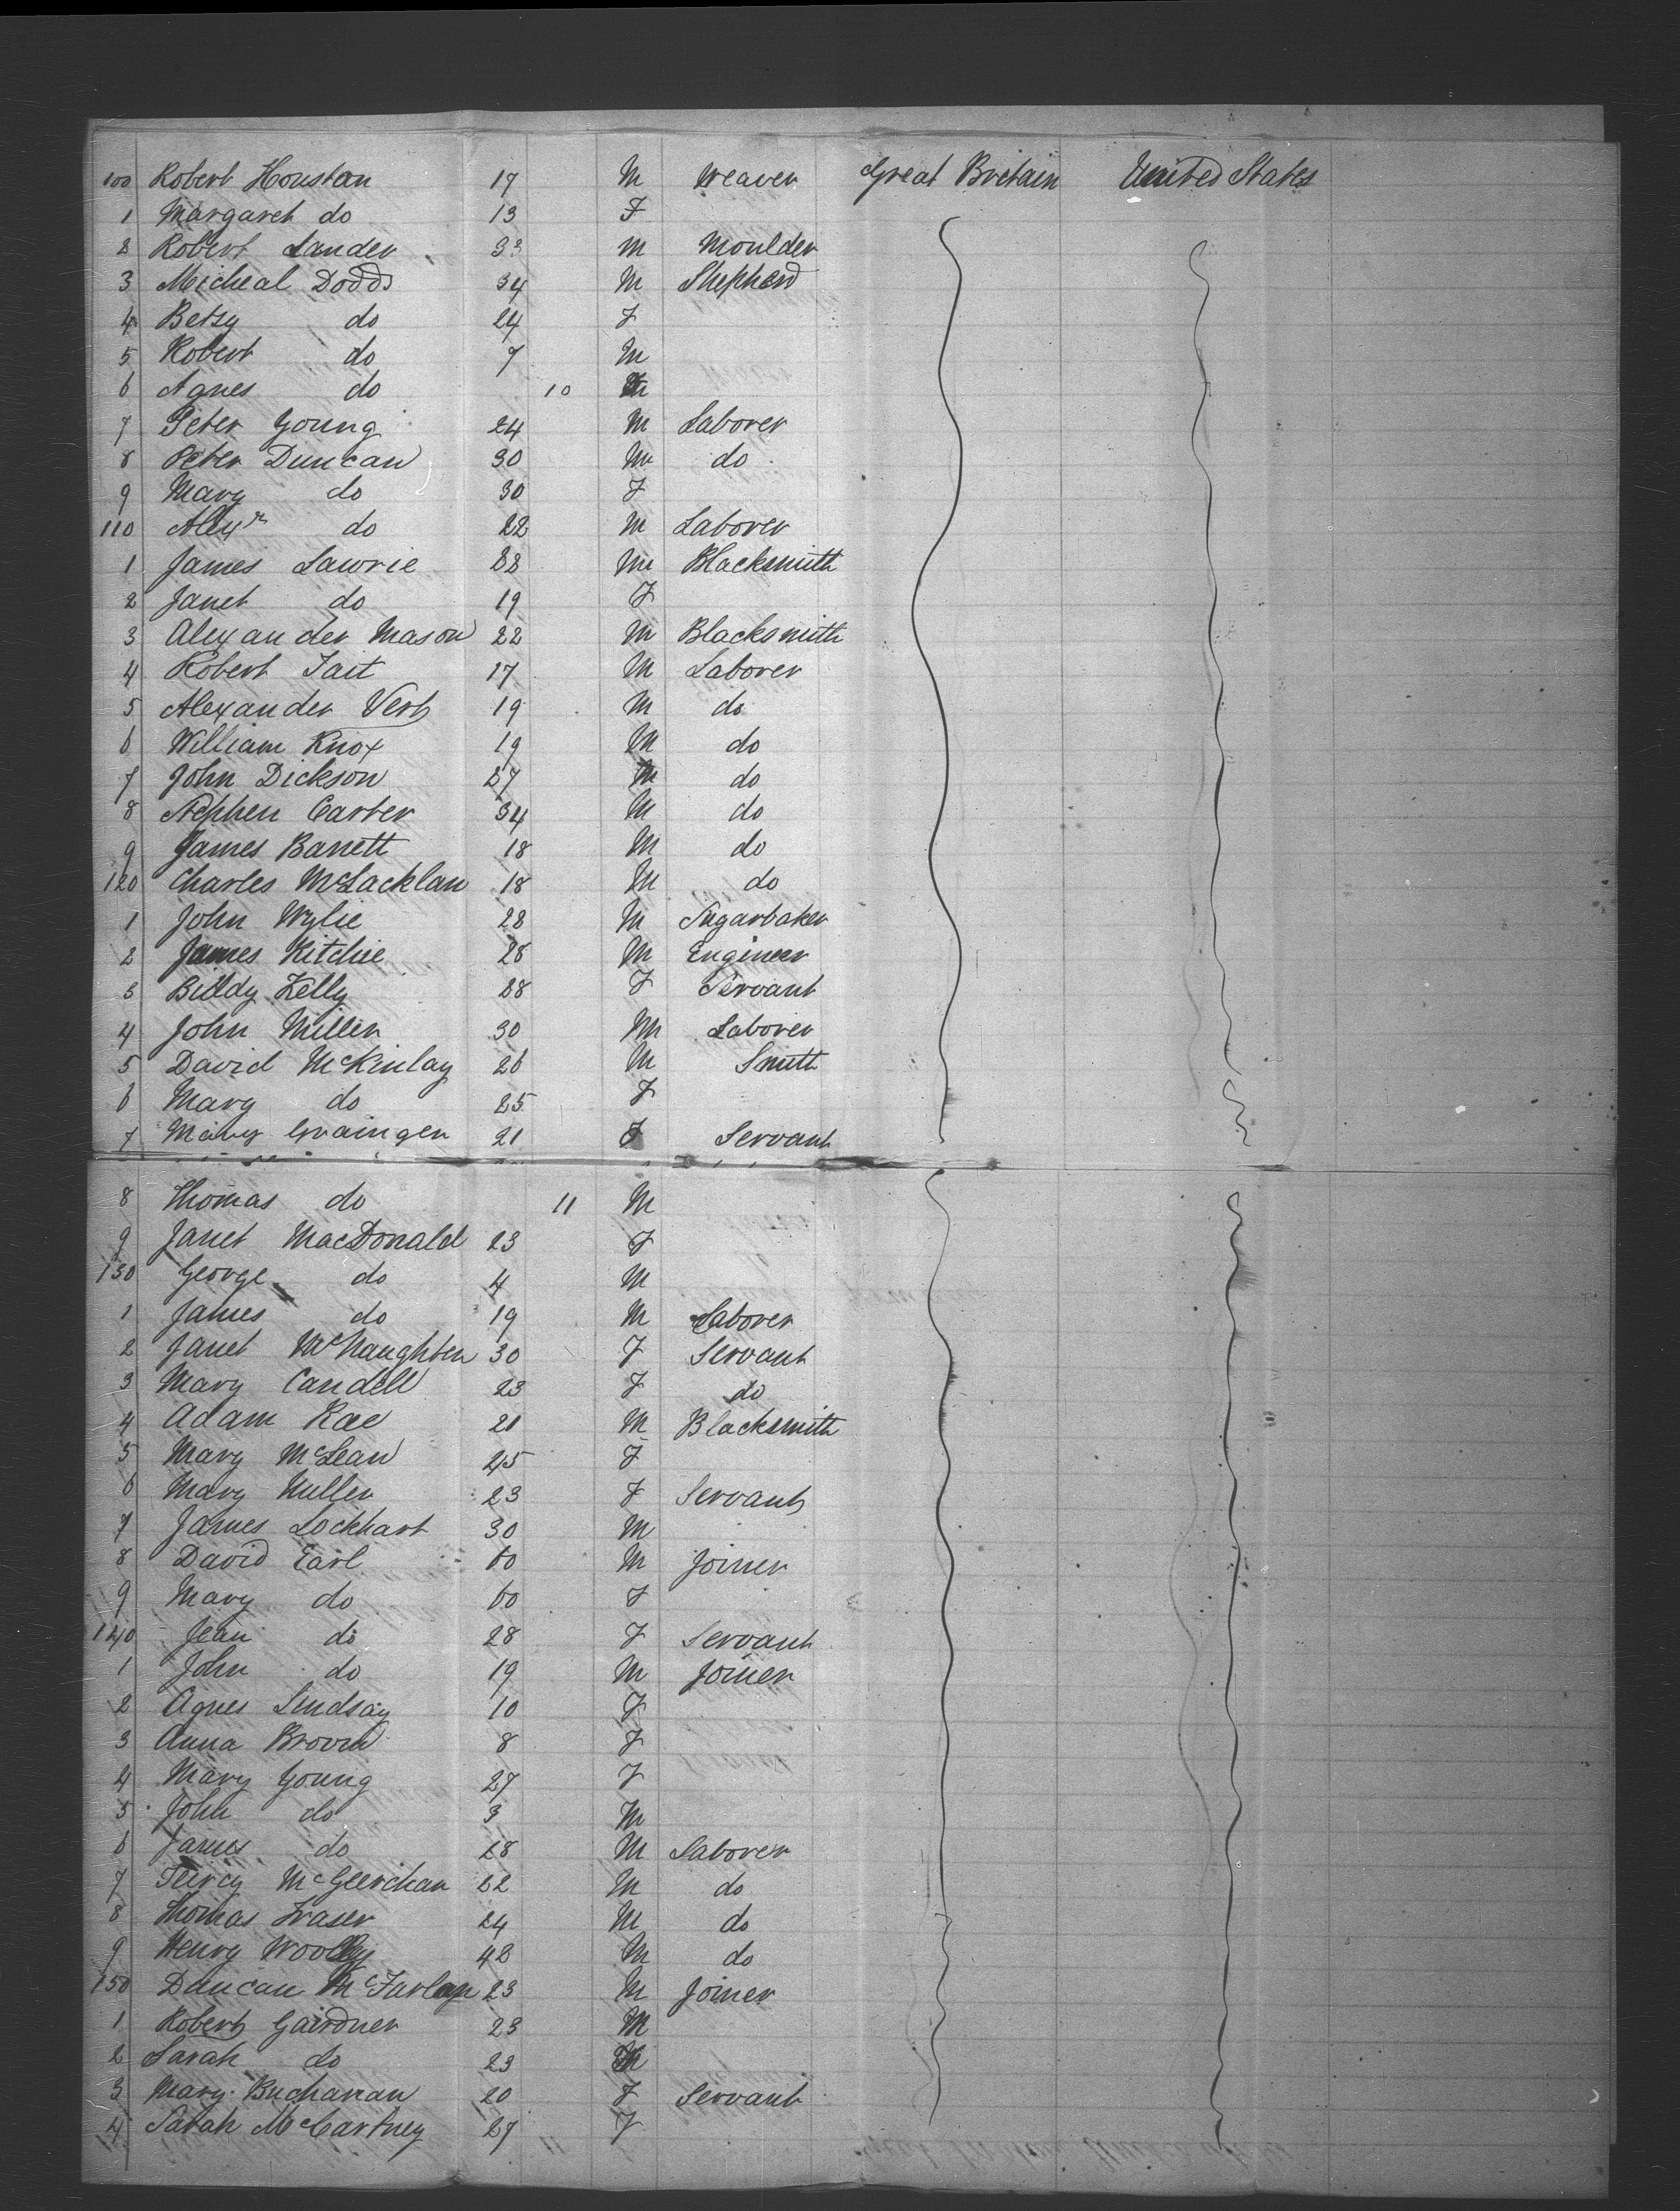 100 Robert Houstan 17 M Weaver Great Britain United States
1 Margaret do 13 F
2 Robert Lander 33 M Moulder
3 Micheal Dodds 34 M Shepherd
4 Betsy do 24 F
5 Robert do 7 M
6 Agnes do 10 F
7 Peter Young 24 M Laborer
8 Peter Duncan 30 M do
9 Mary do 30 F
110 Alexr do 22 M Laborer
1 James Lawrie 28 M Blacksmith
2 Janet do 19 F
3 Alexander Mason 22 M Blacksmith
4 Robert Tait 17 M Laborer
5 Alexander Vert 19 M do
6 William Knox 19 M do
7 John Dickson 27 M do
8 Stephen Carter 34 M do
9 James Barrett 18 M do
120 Charles McLacklan 18 M do
1 John Wylie 28 M Sugarbaker
2 James Ritchie 28 M Engineer
3 Biddy Kelly 28 F Servant
4 John Miller 30 M Laborer
5 David McKinlay 26 M Smith
6 Mary do 25 F
7 Mary Grainger 21 F Servant
8 Thomas do 11 M
9 Janet MacDonald 23 F
130 George do 4 M
1 James do 19 M Laborer
2 Janet McNaughten 30 F Servant
3 Mary Candell 23 F do
4 Adam Rae 21 M Blacksmith
5 Mary McLean 45 F
6 Mary Miller 23 F Servant
7 James Lockhart 30 M
8 David Earl 60 M Joiner
9 Mary do 60 F
140 Jean do 28 F Servant
1 John do 19 M Joiner
2 Agnes Lindsay 10 F
3 Anna Brown 8 F
4 Mary Young 27 F
5 John do 3 M
6 James do 28 M Laborer
7 McGeerchan 22 M do
8 Thomas Fraser 24 M do
9 Henry Woolley 42 M do
150 Duncan McFarlan 23 M Joiner
1 Robert Gairdner 23 M
2 Sarah do 23
3 Mary Buchanan 20 F Servant
4 Sarah McCartney 27 F